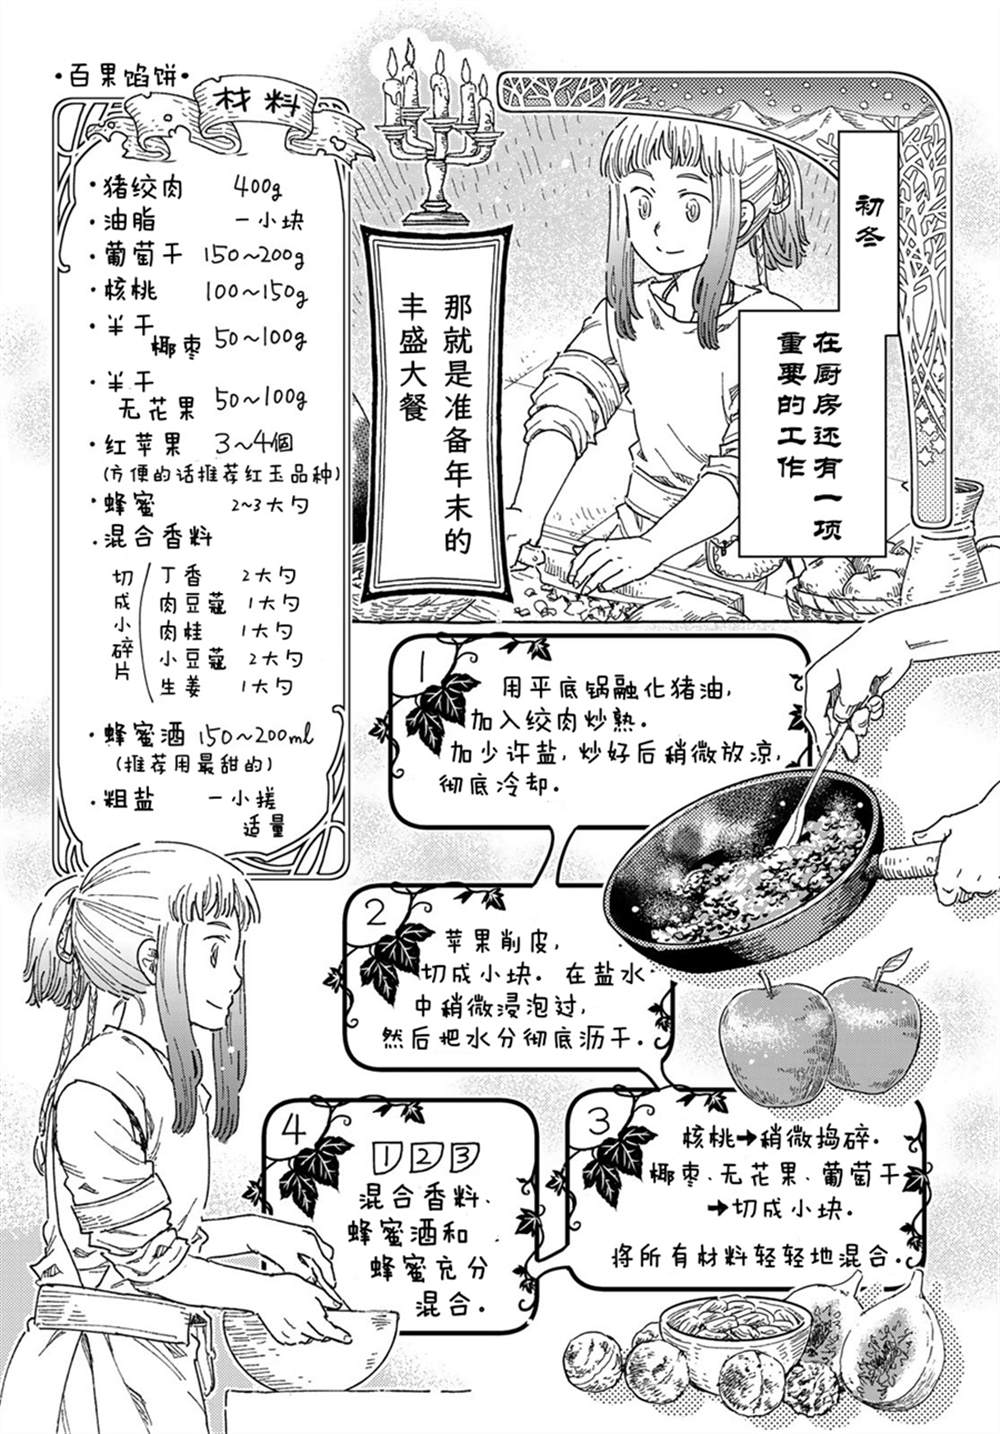 •百果馅饼•
材料
•猪绞肉 400g
•油脂 一小块
•葡萄干 150~200g
•核桃 100~150g
•半干
椰枣 50~100g
•半干
无花果 50~100g
•红苹果 3~4個
(方便的话推荐红玉品种)
•蜂蜜 2~3大勺
.混合香料
切成小碎片
丁香 2大勺
肉豆蔻 1大勺
肉桂 1大勺
小豆蔻 2大勺
生姜 1大勺
•蜂蜜酒 150~200ml
(推荐用最甜的)
•粗盐 一小搓
适量
初冬
在厨房还有一项
重要的工作
那就是准备年末的
丰盛大餐
1
用平底锅融化猪油,
加入绞肉炒熟.
加少许盐,炒好后稍微放凉,
彻底冷却.
2
苹果削皮,
切成小块. 在盐水
中稍微浸泡过,
然后把水分彻底沥干.
3
核桃→稍微捣碎.
椰枣、无花果、葡萄干
→切成小块.
将所有材料轻轻地混合.
4
1 2 3
混合香料、
蜂蜜酒和
蜂蜜充分
混合.